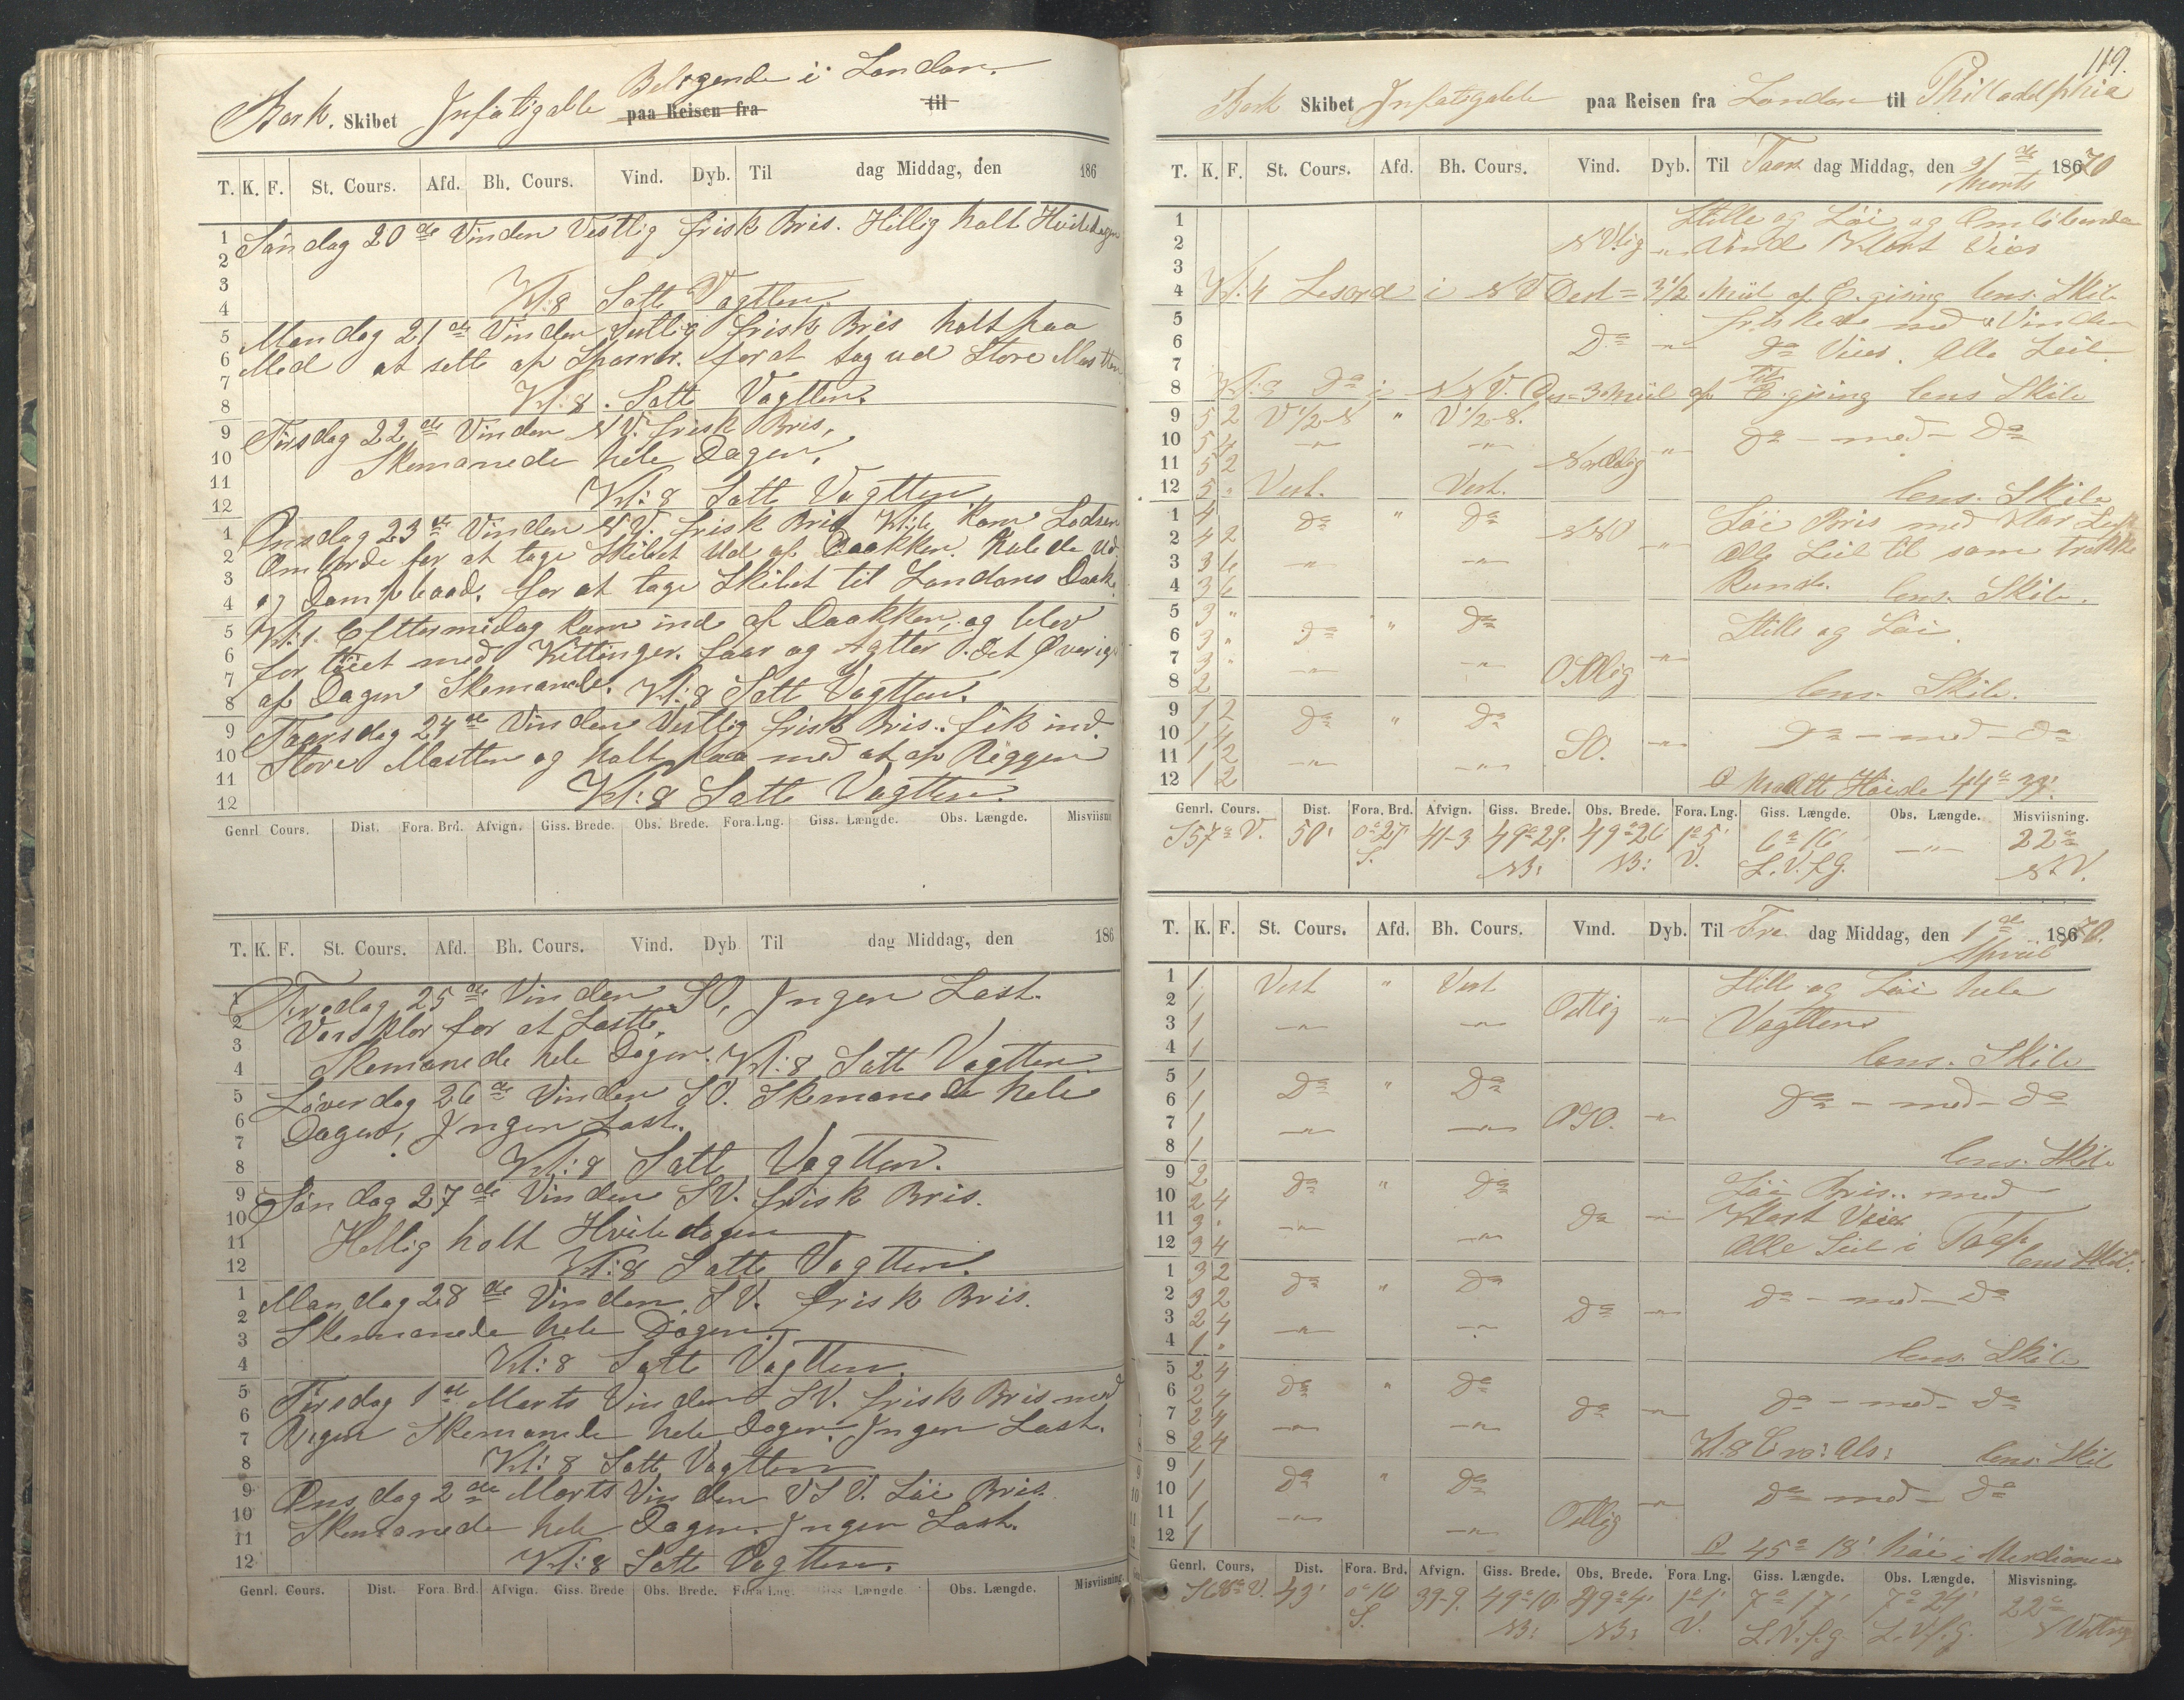 Beligende i London.
Bark. Skibet Infatigable paa Reisen fra til
T. K. F. St. Cours. Afd. Bh. Cours. Vind. Dyb. Til dag Middag, den 186
Søndag 20de Vinden Vestlig frisk Bris. Hillig holt Hviledagen
Kl: 8 Satte Vagtten.
Mandag 21de Vinden Vestlig frisk Bris holt paa
Med at sette op Sparrer. for at tag ud Store Mastten
Kl: 8. Satte Vagtten.
Tirsdag 22de Vinden NV. frisk Bris,
Skemanede hele Dagen.
Kl: 8 Satte Vagtten
Onsdag 23de Vinden NV. frisk Bris Kl: 6 kom Lodsen
Ombord for at tage Skibet Ud af Daakken. Halede Ud
og Dampbaad. for at tage Skibet til Londons Daak.
Kl: 1. Efttermidag kom ind af Daakken, og blev
for töiet med Kittinger. faar og Agtter. Det Øverige
af Dagen Skemanede. Kl: 8 Satte Vagtten.
Taarsdag 24de Vinden Vestlig frisk Bris. fik ind
Store Mastten og holt paa med at op Riggen
Kl: 8 Satte Vagtten.
Genrl Cours. Dist. Fora. Brd. Afvign. Giss. Brede. Obs. Brede. Fora. Lng. Giss. Længde. Obs. Længde. Misviisn
T. K. F. St. Cours. Afd. Bh. Cours. Vind. Dyb Til dag Middag, den 186
Fredag 25de Vinden SO, Ingen Last.
Var klar for at Laste,
Skemanede hele Dagen. Kl: 8 Satte Vagtten.
Løverdag 26de Vinden SO. Skemanede hele
Dagen, Ingen Last.
Kl: 8 Satte Vagtten.
Søndag 27de Vinden SV. frisk Bris.
Hellig holt Hviledagen
Kl: 8 Satte Vagtten.
Mandag 28de Vinden SV. frisk Bris.
Skemanede hele Dagen.
Kl: 8 Satte Vagtten.
Tirsdag 1de Marts Vinden SV. frisk Bris med
Regen Skemande hele Dagen. Ingen Last.
Kl: 8 Satte Vagtten
Onsdag 2de Marts Vinden VSV. Löi Bris.
Skemanede hele Dagen. Ingen Last.
Kl: 8 Satte Vagtten.
Genrl. Cours. Dist. Fora. Brd. Afvign. Giss. Brede Obs. Brede. Fora Lng. Giss Længde Obs. Længde. Misviisning.
119.
Bark Skibet Infatigable paa Reisen fra London til Philladelphia
T. K. F. St. Cours. Afd. Bh. Cours. Vind. Dyb. Til Taars dag Middag, den 31de Marts 1870
1 Stille og Löi og Omlöbende
2 NVlig " Vind Klart Veier
3
4 Kl. 4 i NV 3 1/2 Miil af gising lens. Skib
5 friskede med Vinden
6 Do " do Veier. Alle Seil.
7
8 do i NNV. 3 Miil af gising lens Skib
9 5 2 V 1/2 S " V 1/2 S.
10 5 4 " " " do - med - Do
11 5 2 Nordlig
12 5 " Vest. Vest. lens. Skib
1 4 do " do NNO Löi Bris med Klar Luft
2 4 2 " Alle Seil til som trekke
3 3 6 " " Kunde.
4 3 6 lens. Skib.
5 3 " Stille og Löi.
6 3 " do " do
7 3 " " " Ostlig "
8 2 lens. Skib.
9 1 2 do " do
10 1 4 SO. " Do - med - do
11 1 2 " "
12 1 2 44° 39'.
Genrl. Cours. Dist. Fora. Brd. Afvign. Giss. Brede. Obs. Brede. Fora. Lng. Giss. Længde. Obs. Længde. Misviisning.
S57°V. 50' 0°27' 41-3 49°29' 49°26 1°5' 6°16' " 22°
S. NB: NB: V. L.V.f.G. NV.
T. K. F. St. Cours. Afd. Bh. Cours. Vind. Dyb. Til Fre dag Middag, den 1de April 1870.
1 1 Vest " Vest Stille og Löi hele
2 1 Ostlig " Vagtten
3 1 " "
4 1 lens. Skib
5 1 Do " Do
6 1 do - med - do
7 1 " " OSO. "
8 1 lens. Skib
9 2 do " do Löi Bris. med
10 2 4 Klart Veier
11 3 " " do " Alle Seil i
12 3 4 " lens Skib.
1 3 2 do " do
2 3 2 do " do - med - Do
3 2 4 " "
4 1 " lens. Skib
5 2 4 do " do
6 2 4 do " do - med - do
7 2 4 " "
8 2 4 lens. Skib
9 1 do " do
10 1 " do med - do
11 1 " " Ostlig
12 1 45° 18' i Merdianen
Genrl. Cours. Dist. Fora. Brd. Afvign. Giss. Brede. Obs. Brede. Fora Lng. Giss. Længde. Obs. Længde. Misvisning.
S68°V. 43' 0°16 39-9. 49°10' 49°4' 1°1' 7°17' 7°24' 22°
S. NB: NB: V. L.V.f.G. L.V.f.G.